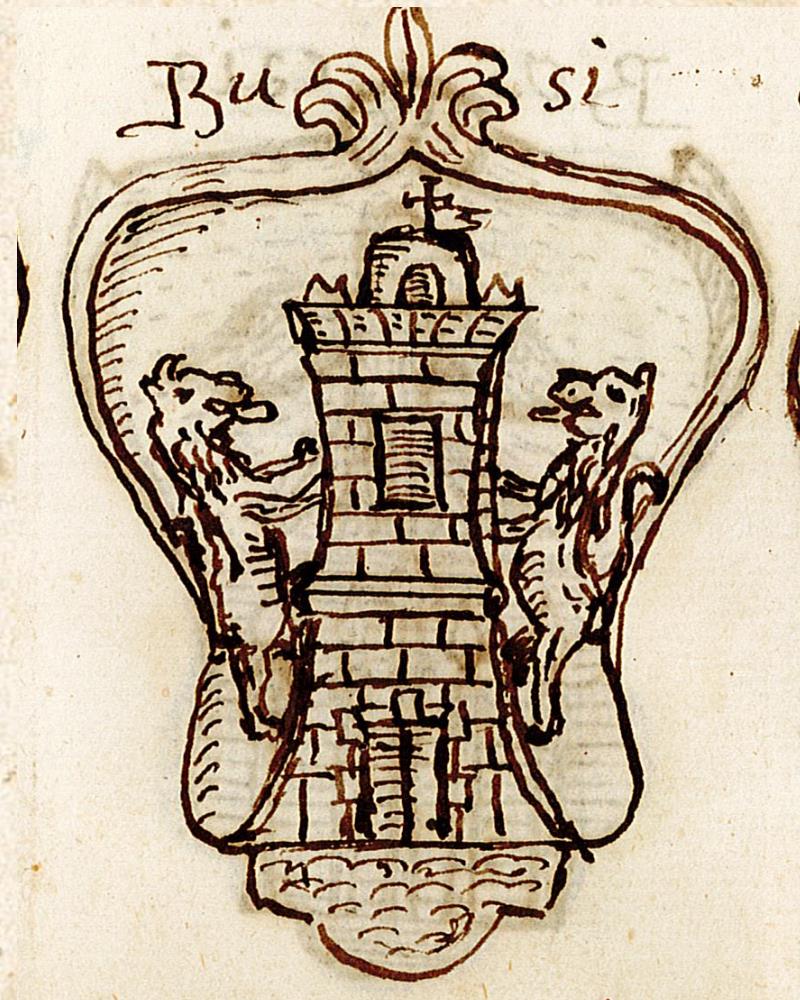 Bu si